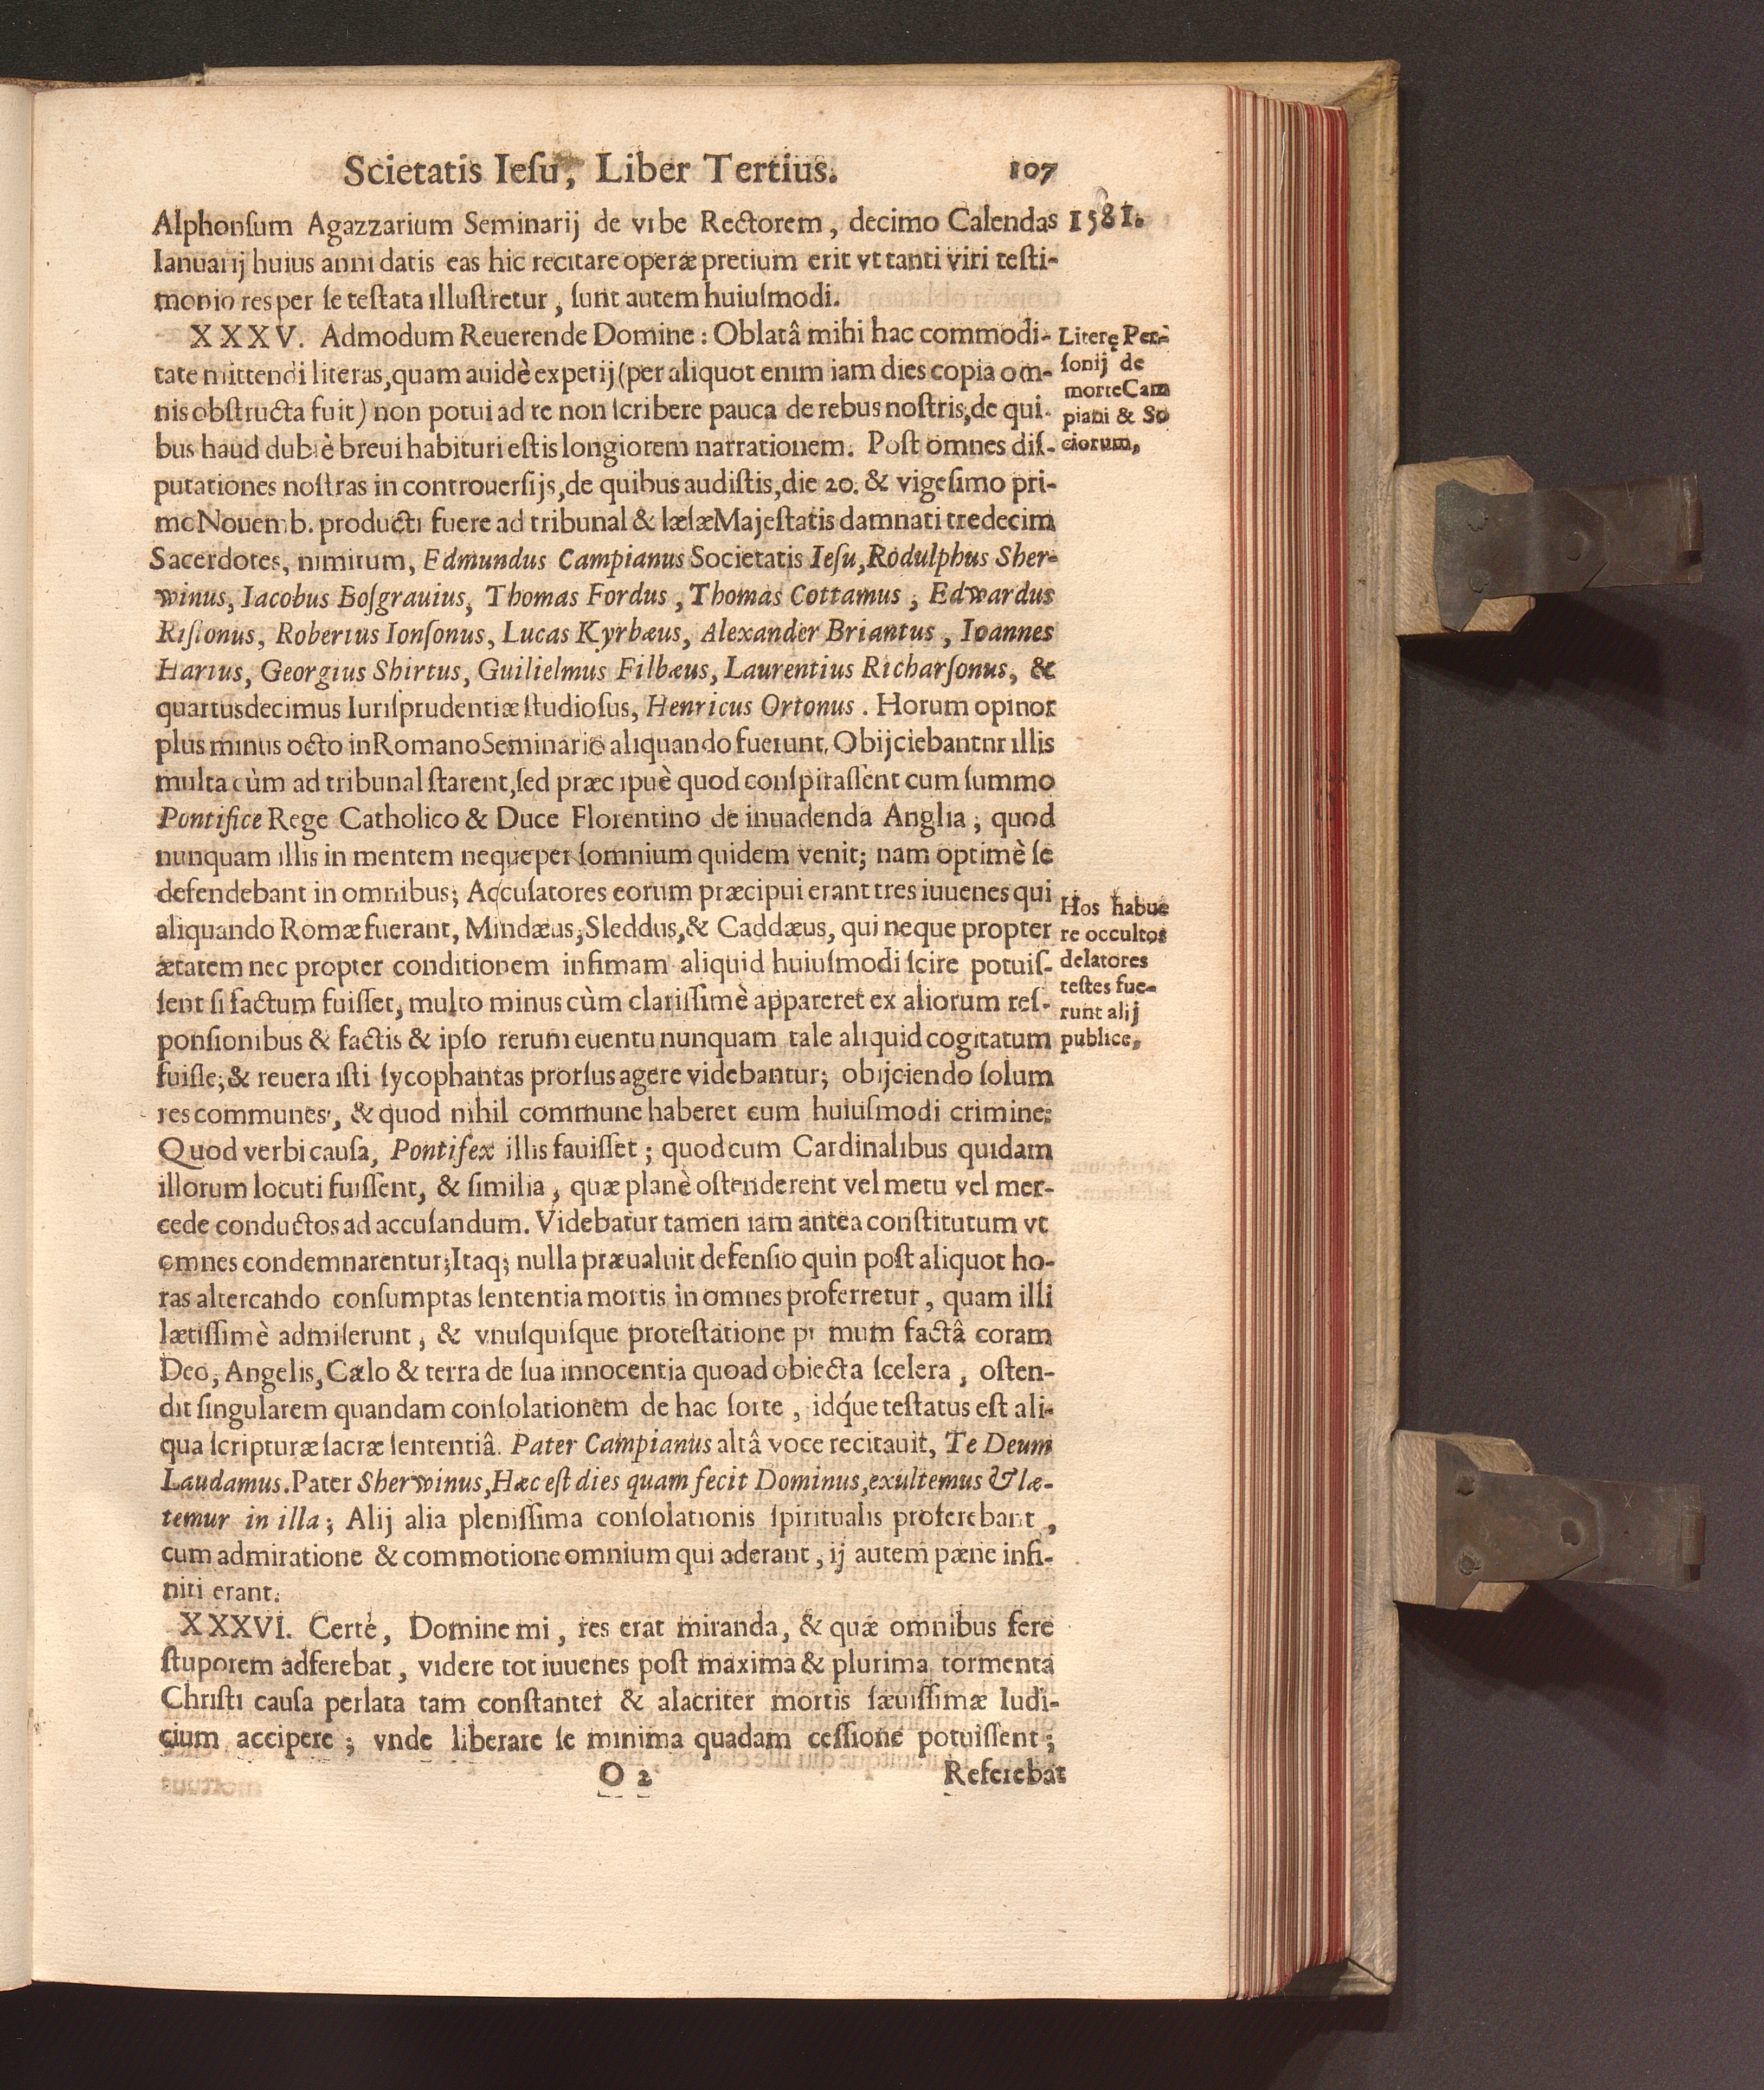 Scietatis Ieſu, Liber Tertius. 107
Alphonſum Agazzarium Seminarij de vrbe Rectorem, decimo Calendas 1581.
Ianuarij huius anni datis eas hic recitare operæ pretium erit vt tanti viri teſti-
monio res per ſe teſtata illuſtretur, ſunt autem huiuſmodi.
XXXV. Admodum Reuerende Domine: Oblatâ mihi hac commodi-
tate mittendi literas, quam auidè expetij (per aliquot enim iam dies copia om-
nis obſtructa fuit) non potui ad te non ſcribere pauca de rebus noſtris, de qui-
bus haud dubiè breui habituri eſtis longiorem narrationem. Poſt omnes diſ-
putationes noſtras in controuerſijs, de quibus audiſtis, die 20. & vigeſimo pri-
mo Nouemb. producti fuere ad tribunal & læſæ Majeſtatis damnati tredecim
Sacerdotes, nimirum, Edmundus Campianus Societatis Ieſu, Rodulphus Sher-
winus, Iacobus Boſgrauius, Thomas Fordus, Thomas Cottamus, Edwardus
Riſtonus, Robertus Ionſonus, Lucas Kyrbæus, Alexander Briantus, Ioannes
Hartus, Georgius Shirtus, Guilielmus Filbæus, Laurentius Richarſonus, &
quartusdecimus Iuriſprudentiæ ſtudioſus, Henricus Ortonus. Horum opinor
plus minus octo in Romano Seminario aliquando fuerunt. Obijciebantnr illis
multa cùm ad tribunal ſtarent, ſed præcipuè quod conſpiraſſent cum ſummo
Pontifice Rege Catholico & Duce Florentino de inuadenda Anglia; quod
nunquam illis in mentem neque per ſomnium quidem venit; nam optimè ſe
defendebant in omnibus; Accuſatores eorum præcipui erant tres iuuenes qui
aliquando Romæ fuerant, Mindæus, Sleddus, & Caddæus, qui neque propter
ætatem nec propter conditionem infimam aliquid huiuſmodi ſcire potuiſ-
ſent ſi factum fuiſſet, multo minus cùm clariſſimè appareret ex aliorum reſ-
ponſionibus & factis & ipſo rerum euentu nunquam tale aliquid cogitatum
fuiſſe; & reuera iſti ſycophantas prorſus agere videbantur; obijciendo ſolum
res communes, & quod nihil commune haberet cum huiuſmodi crimine:
Quod verbi cauſa, Pontifex illis fauiſſet; quod cum Cardinalibus quidam
illorum locuti fuiſſent, & ſimilia, quæ planè oſtenderent vel metu vel mer-
cede conductos ad accuſandum. Videbatur tamen iam antea conſtitutum vt
omnes condemnarentur; Itaq; nulla præualuit defenſio quin poſt aliquot ho-
ras altercando conſumptas ſententia mortis in omnes proferretur, quam illi
lætiſſimè admiſerunt, & vnuſquiſque proteſtatione primum factâ coram
Deo, Angelis, Cælo & terra de ſua innocentia quoad obiecta ſcelera, oſten-
dit ſingularem quandam conſolationem de hac ſorte, idq́ue teſtatus eſt ali-
qua ſcripturæ ſacræ ſententiâ. Pater Campianus altâ voce recitauit, Te Deum
Laudamus. Pater Sherwinus, Hæc eſt dies quam fecit Dominus, exultemus & læ-
temur in illa; Alij alia pleniſſima conſolationis ſpiritualis proferebant,
cum admiratione & commotione omnium qui aderant, ij autem pæne infi-
niti erant.
XXXVI. Certè, Domine mi, res erat miranda, & quæ omnibus fere
ſtuporem adferebat, videre tot iuuenes poſt maxima & plurima tormenta
Chriſti cauſa perlata tam conſtanter & alacriter mortis ſæuiſſimæ Iudi-
cium accipere; vnde liberare ſe minima quadam ceſſione potuiſſent;
O 2 Referebat
Literę Per-
ſonij de
morte Cam
piani & So
ciorum,
Hos habue
re occultos
delatores
teſtes fue-
runt alij
publice,